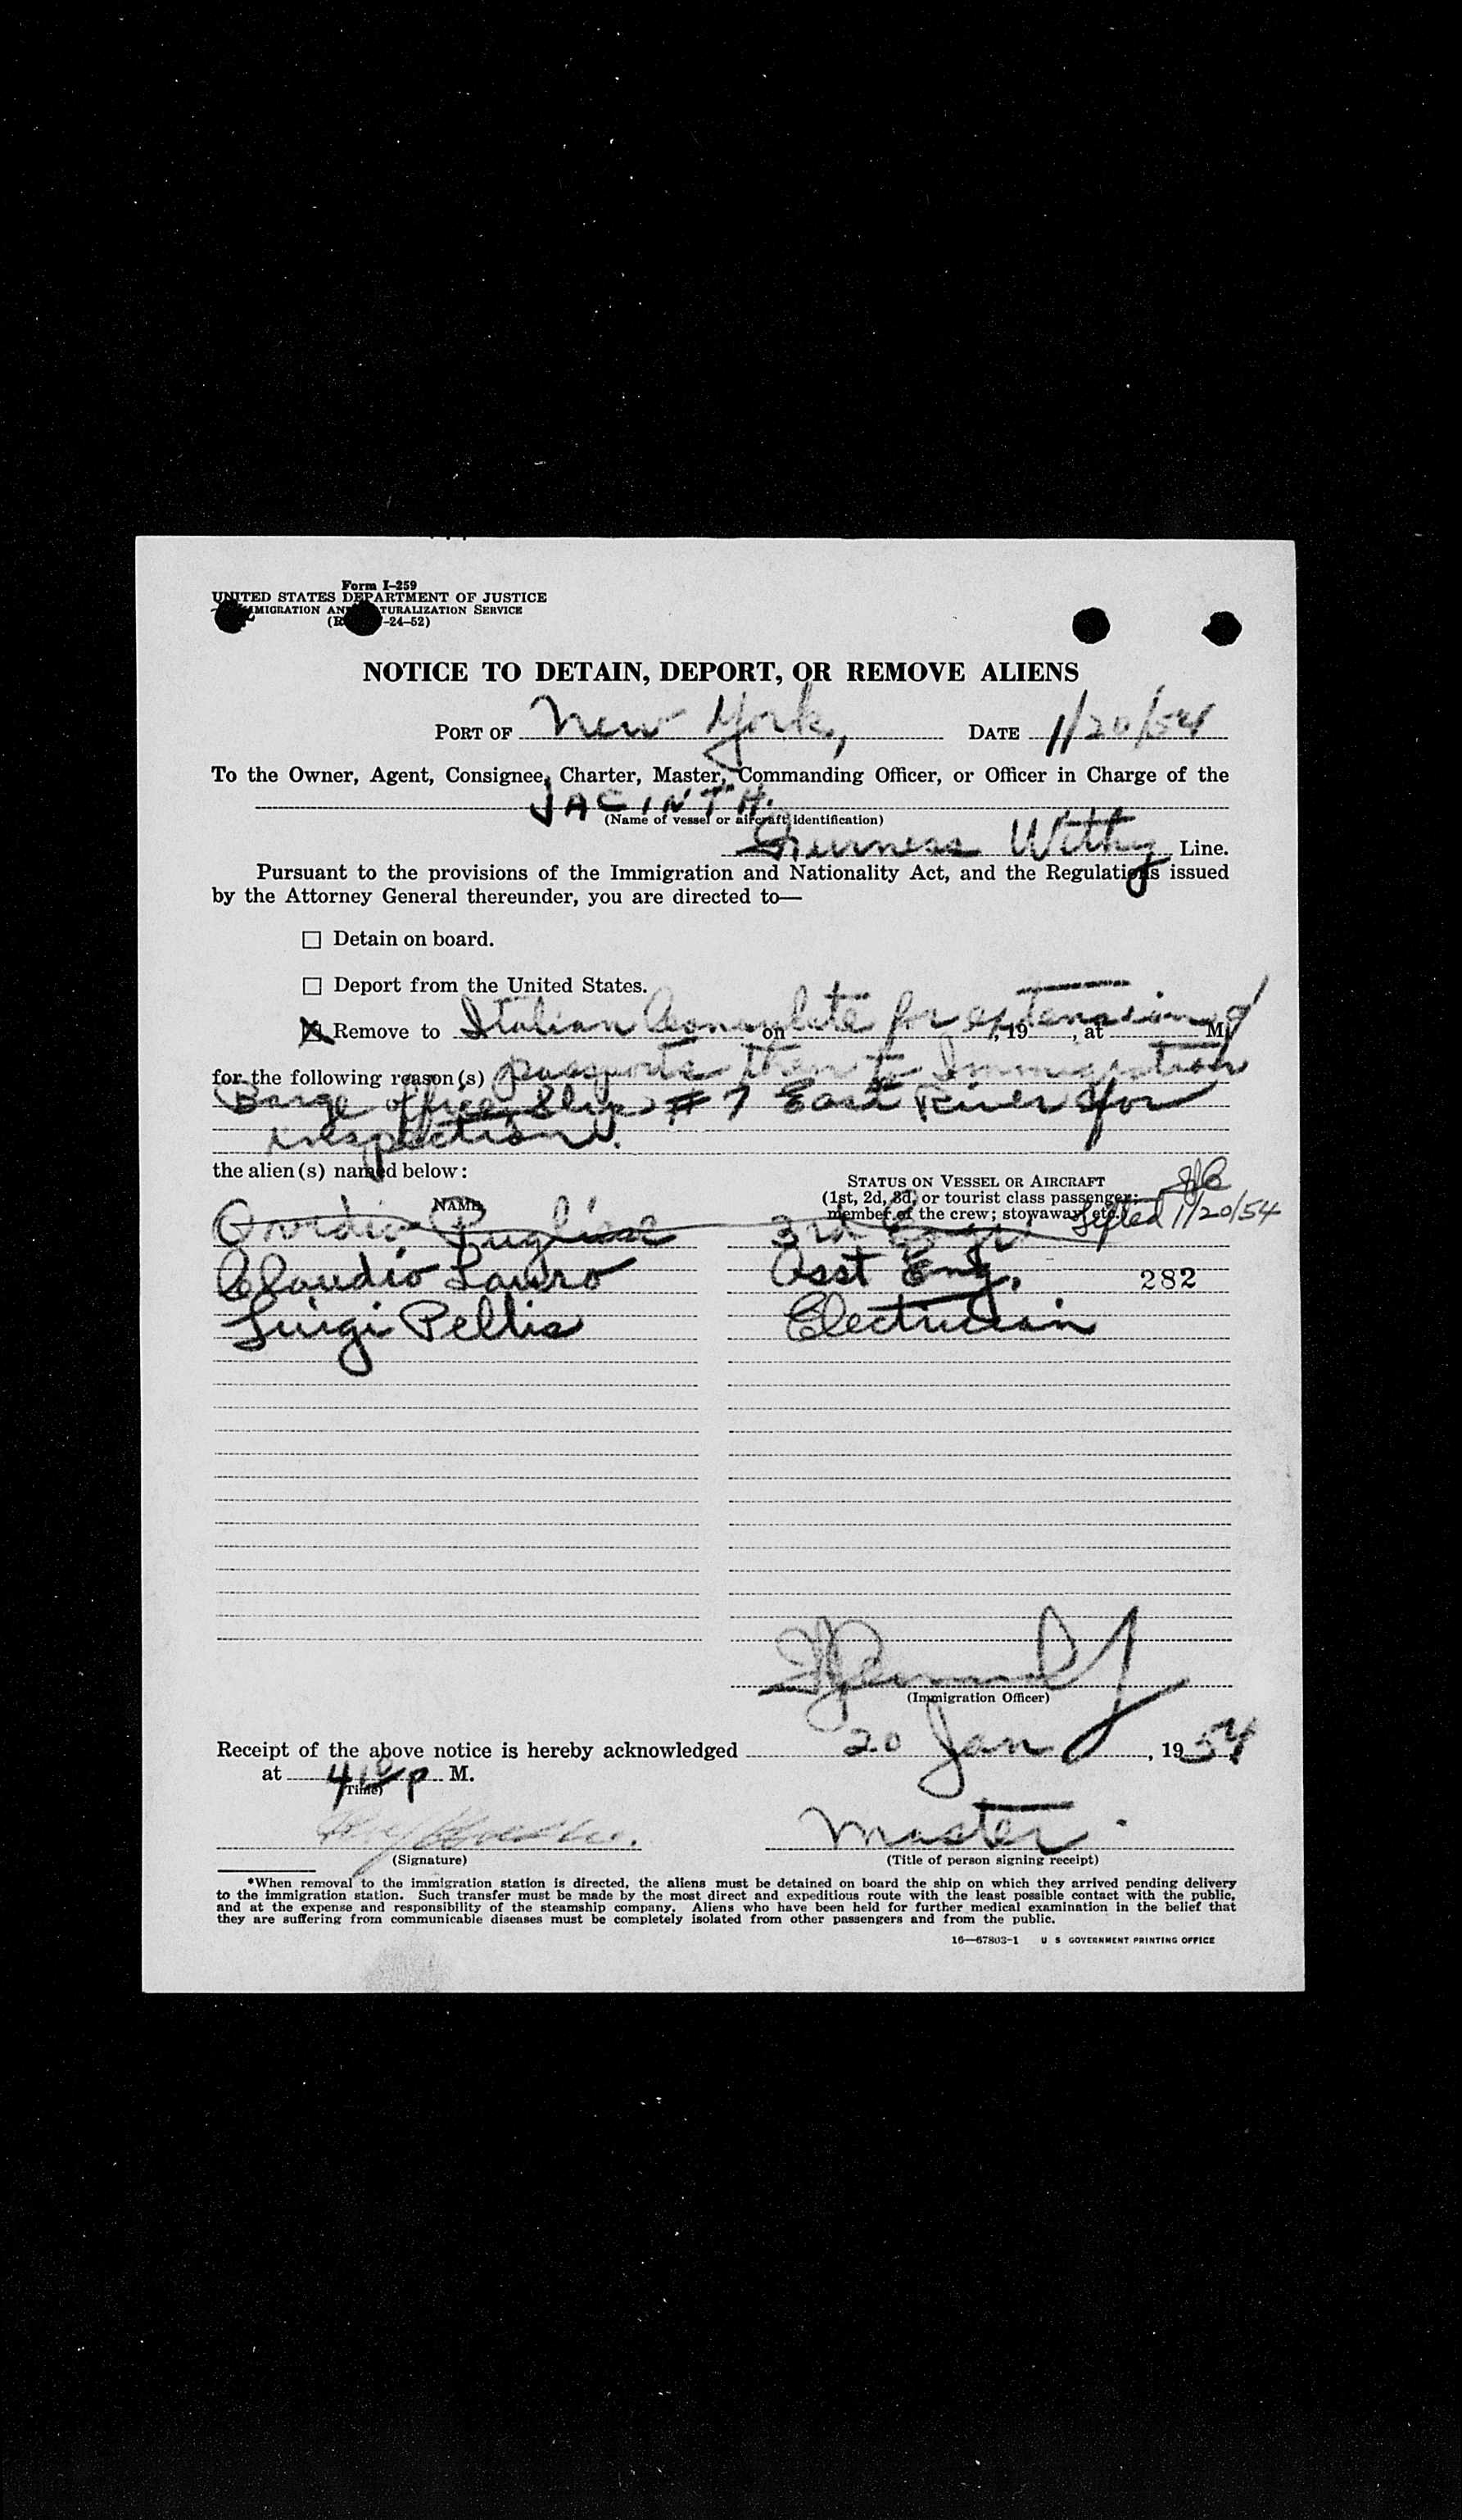 Form I-259
UNITED STATES DEPARTMENT OF JUSTICE
IMMIGRATION AND NATURALIZATION SERVICE
-24-52)
NOTICE TO DETAIN, DEPORT, OR REMOVE ALIENS
PORT OF New York, DATE 1/20/54
To the Owner, Agent, Consignee, Charter, Master, Commanding Officer, or Officer in Charge of the
JACINTH.
(Name of vessel or aircraft identification)
Furness Withy Line.
Pursuant to the provisions of the Immigration and Nationality Act, and the Regulations issued
by the Attorney General thereunder, you are directed to—
☐ Detain on board.
☐ Deport from the United States.
☒ Remove to Italian Consulate for extension of on , 19 , at M.
for the following reason(s) passports then to Immigration
Barge office, Slip # 7 East River for
inspection.
the alien(s) named below:
NAME
STATUS ON VESSEL OR AIRCRAFT
(1st, 2d, 3d, or tourist class passenger;
member of the crew; stowaway, etc.)
Lifted 1/20/54
Ovidio Pugliese 3rd Engr.
Claudio Lauro Asst Eng. 282
Luigi Pellis Electrician
(Immigration Officer)
Receipt of the above notice is hereby acknowledged 20 Jan , 1954
at 410 p M.
(Time)
Master
(Signature) (Title of person signing receipt)
*When removal to the immigration station is directed, the aliens must be detained on board the ship on which they arrived pending delivery
to the immigration station. Such transfer must be made by the most direct and expeditious route with the least possible contact with the public,
and at the expense and responsibility of the steamship company. Aliens who have been held for further medical examination in the belief that
they are suffering from communicable diseases must be completely isolated from other passengers and from the public.
16—67803-1 U S GOVERNMENT PRINTING OFFICE